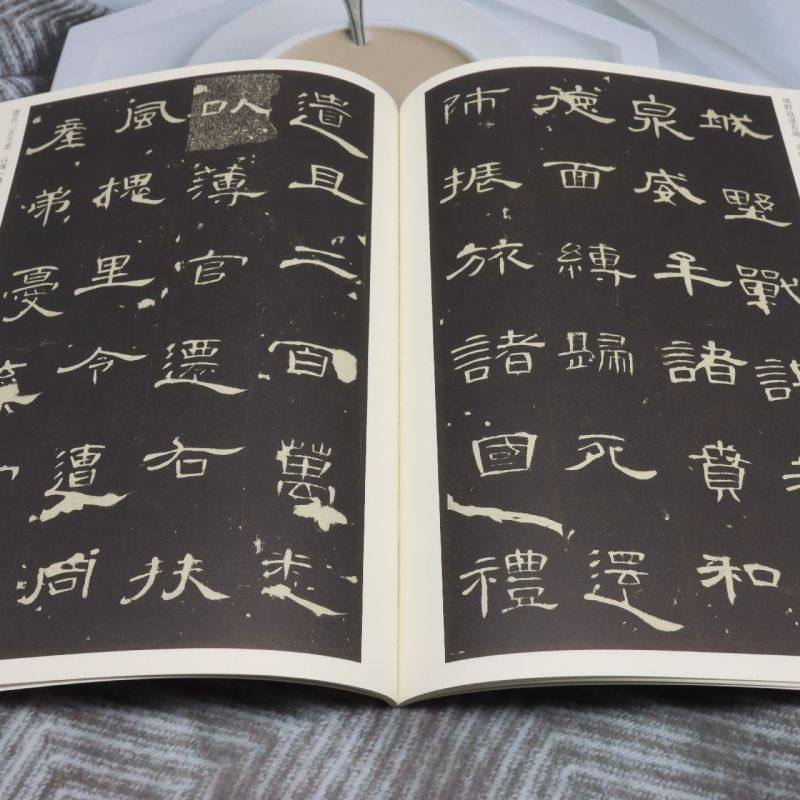 城野戰謀
泉威牟諸賁和
德面縛歸死還
師振旅諸國禮
遺且二百萬悉
以薄官遷右扶
風槐里令遭同
產弟憂棄